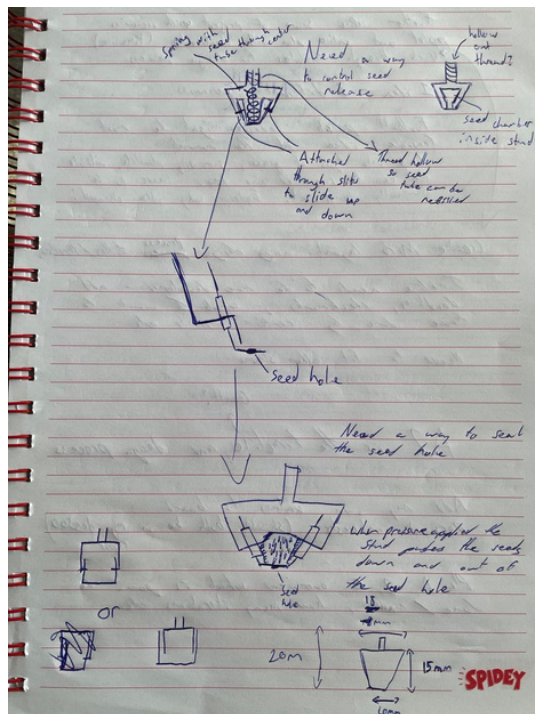 Spring with
seed
tube through center
Need a way
to control seed
release
hollow
out
thread?
seed chamber
inside stud
Attached
through slits
to slide up
and down
Thread hollow
so seed
tube can be
refilled
seed hole
Need a way to seal
the seed hole
when pressure applied the
stud pushes the seeds
down and out of
the seed hole
seed
hole
or
18
mm
20m
15mm
10mm
SPIDEY